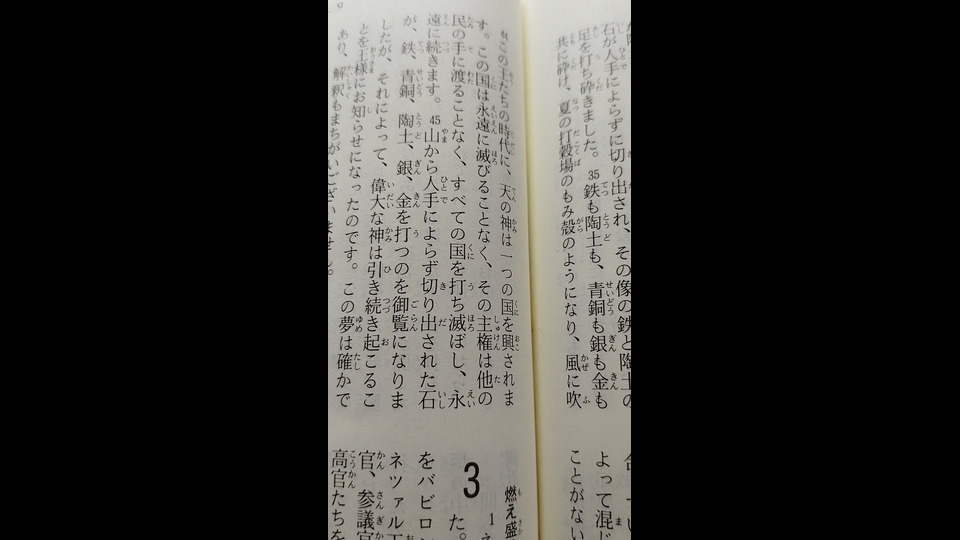 石が人手によらずに切り出され、その像の鉄と陶土の
足を打ち砕きました。35鉄も陶土も、青銅も銀も金も
共に砕け、夏の打穀場のもみ殻のようになり、風に吹
よって混じ
ことがない
44この王たちの時代に、天の神は一つの国を興されま
す。この国は永遠に滅びることなく、その主権は他の
民の手に渡ることなく、すべての国を打ち滅ぼし、永
遠に続きます。45山から人手によらず切り出された石
が、鉄、青銅、陶土、銀、金を打つのを御覧になりま
したが、それによって、偉大な神は引き続き起こるこ
とを王様にお知らせになったのです。この夢は確かで
あり、解釈もまちがいございません。
燃え盛
3
1ネ
た。
をバビロン
ネツァル王
官、参議官
高官たちを